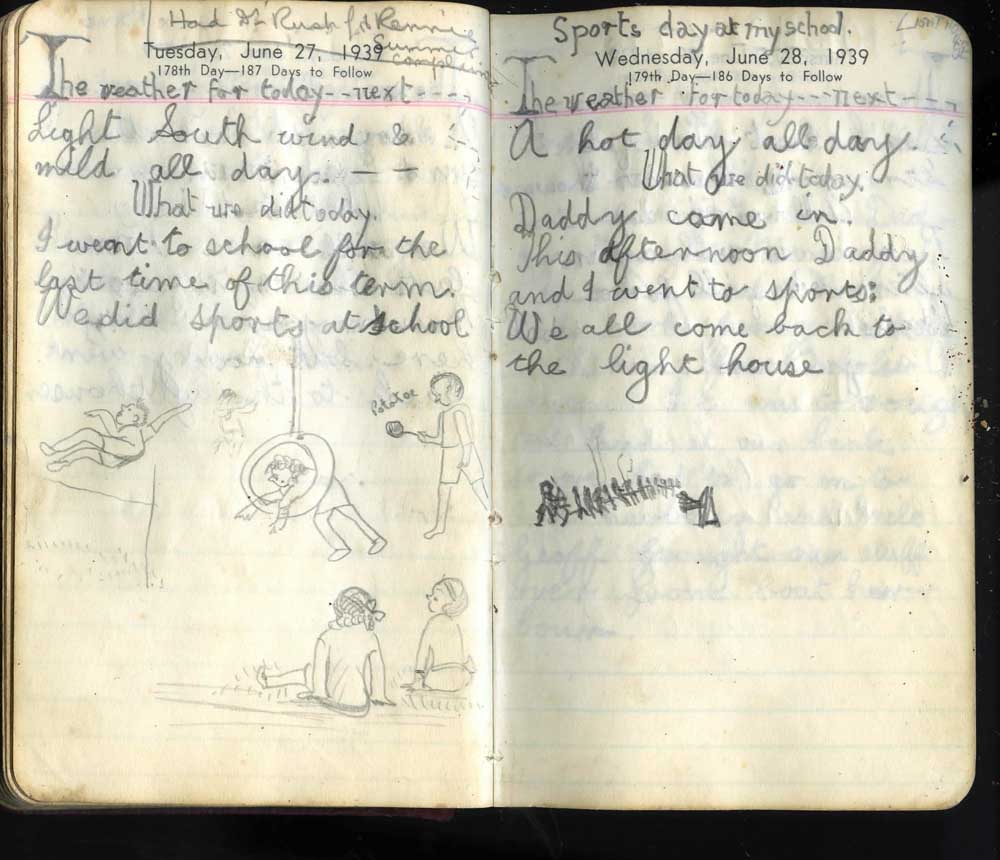 Had Dr Rush for Rennie
Summer
complain
Tuesday, June 27, 1939
178th Day—187 Days to Follow
The weather for today---next----
Light South wind &
mild all day. — +
What we did today.
I went to school for the
last time of this term.
We did sports at school
Potatoe
Sports day at my school.
Wednesday, June 28, 1939
179th Day—186 Days to Follow
The weather for today---next---
A hot day all day.
What we did today.
Daddy came in.
This afternoon Daddy
and I went to sports:
We all come back to
the light house